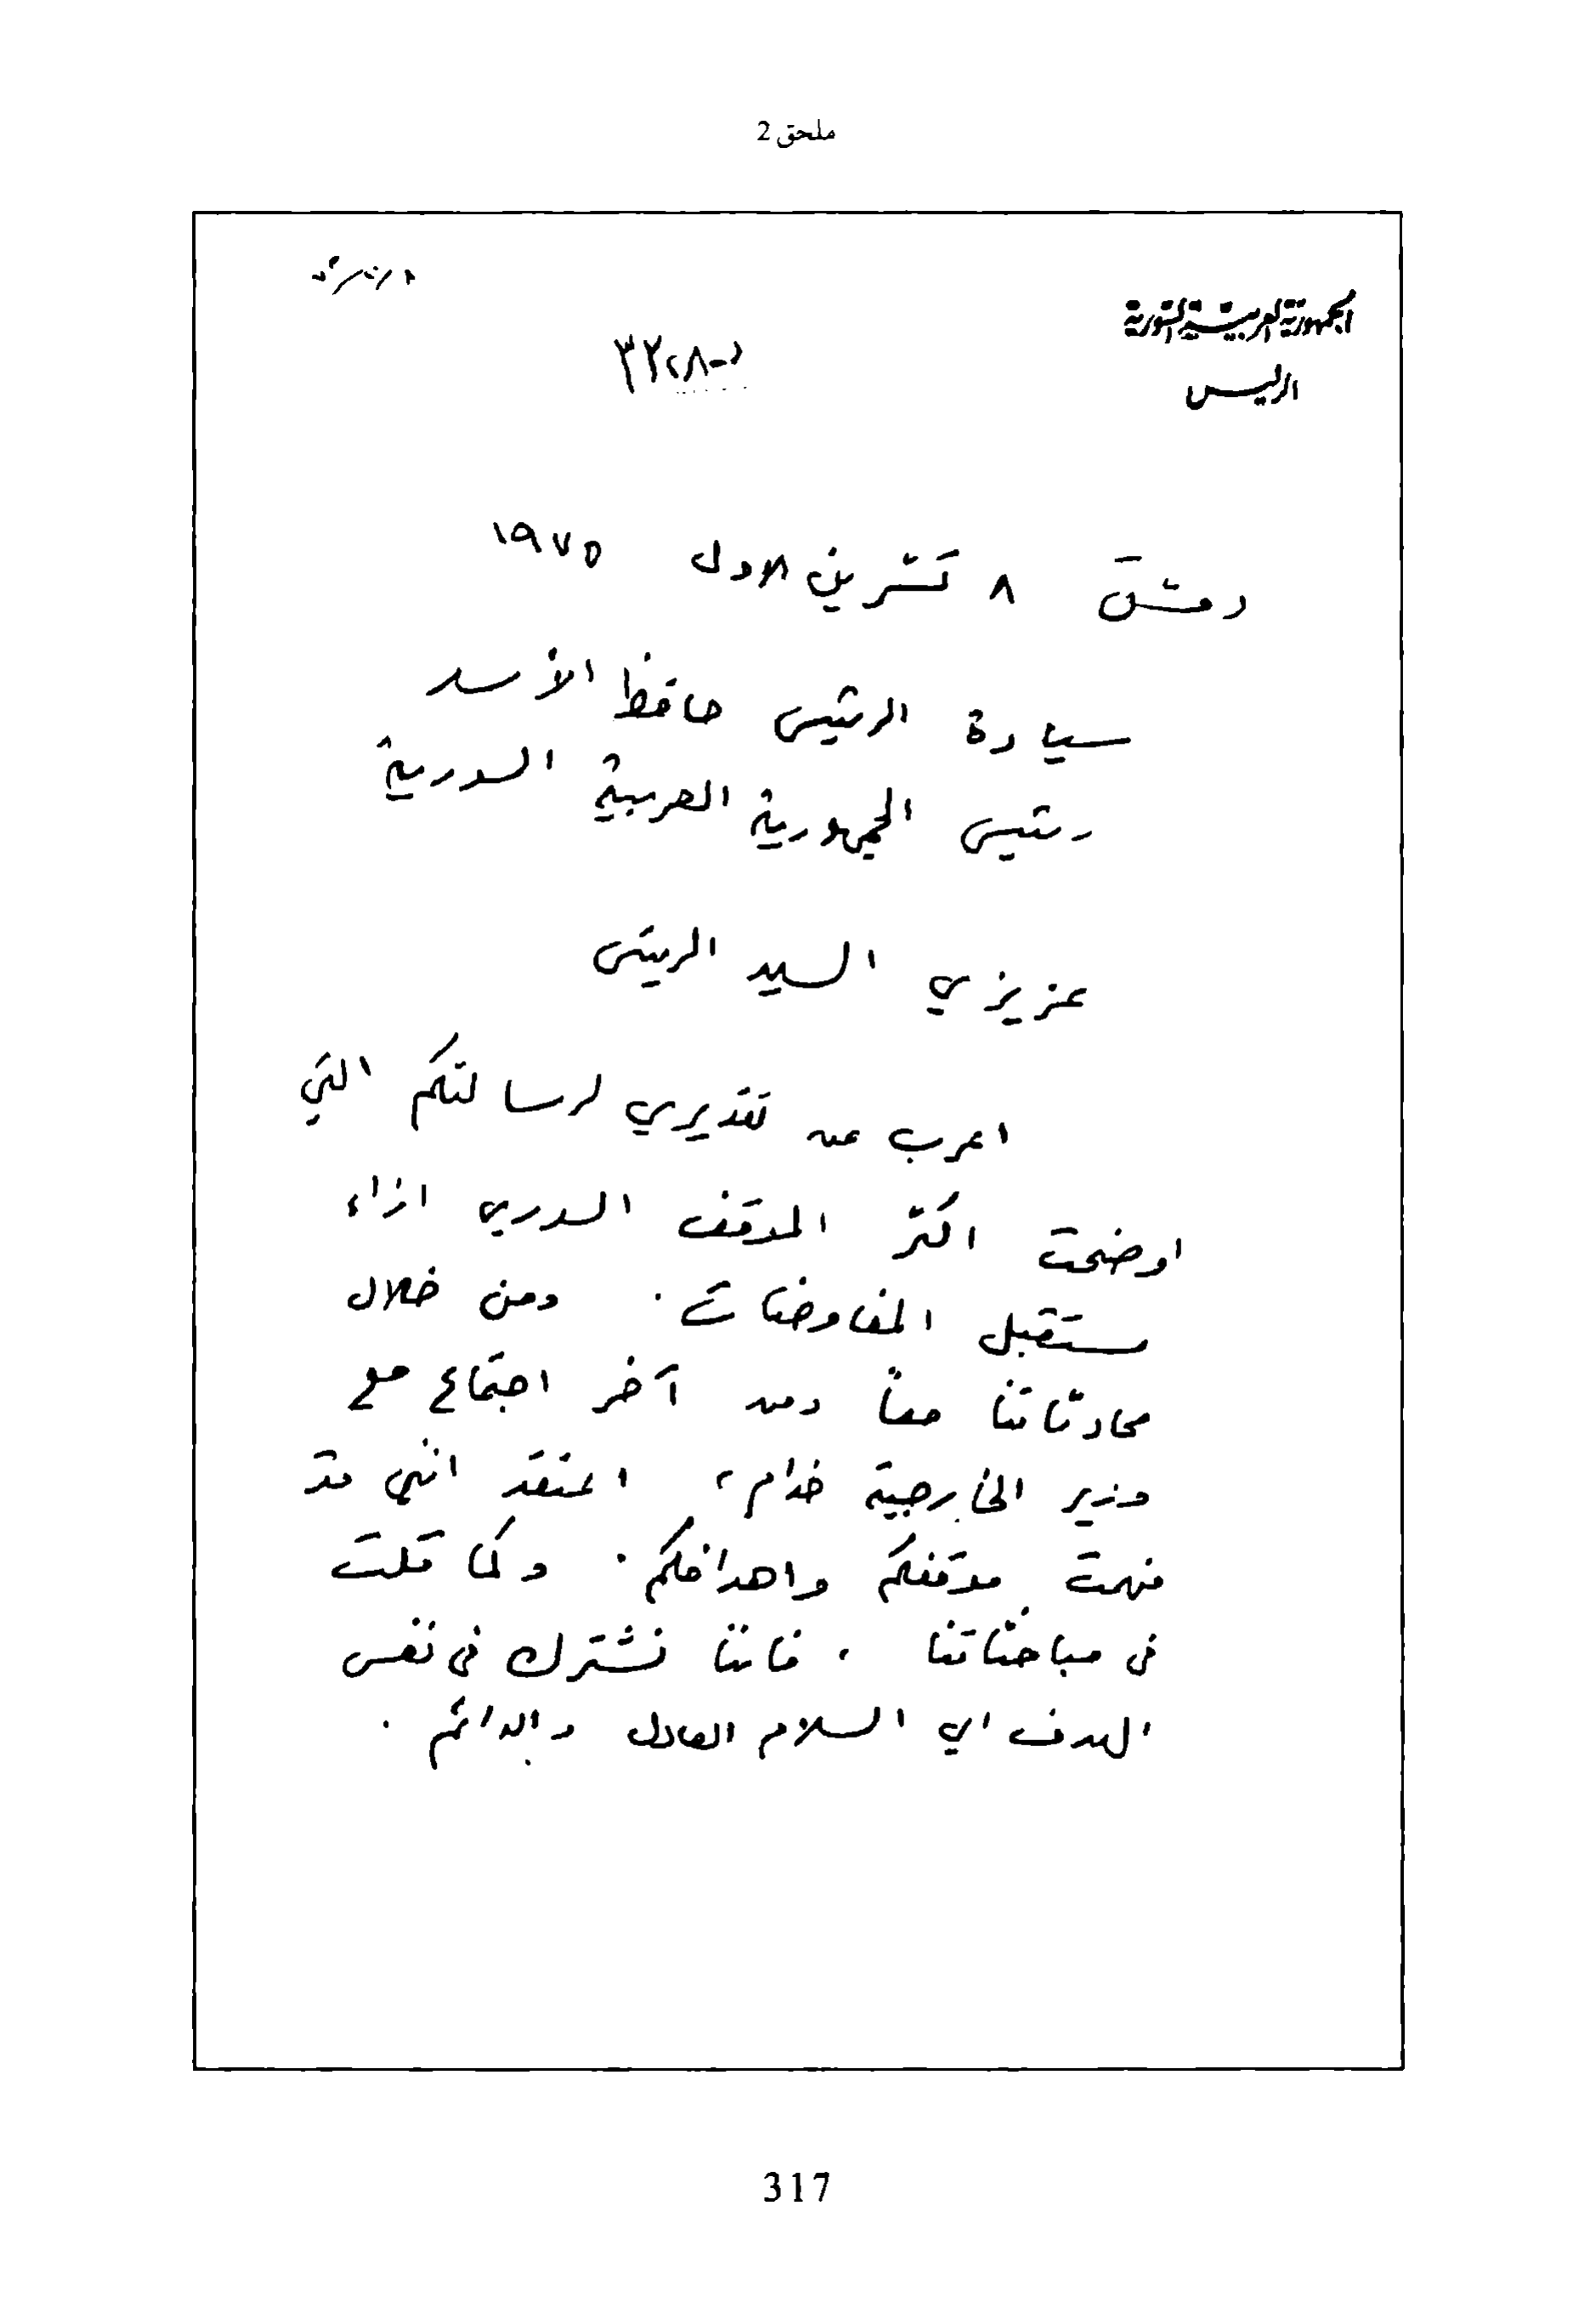 ملحق 2
الجمهورية العربية السورية
الرئيس
دمشق ٨ تشرين الاول ١٩٧٥
سيادة الرئيس حافظ الأسد
رئيس الجمهورية العربية السورية
عزيزي السيد الرئيس
اعرب عن تقديري لرسالتكم التي
اوضحت اكثر الموقف السوري ازاء
مستقبل المفاوضات . ومن خلال
محادثاتنا معاً ومن آخر اجتماع مع
وزير الخارجية خدام ، اعتقد انني قد
فهمت موقفكم واهدافكم . وكما قلت
في مباحثاتنا ، فاننا نشترك في نفس
الهدف اي السلام العادل والدائم .
317